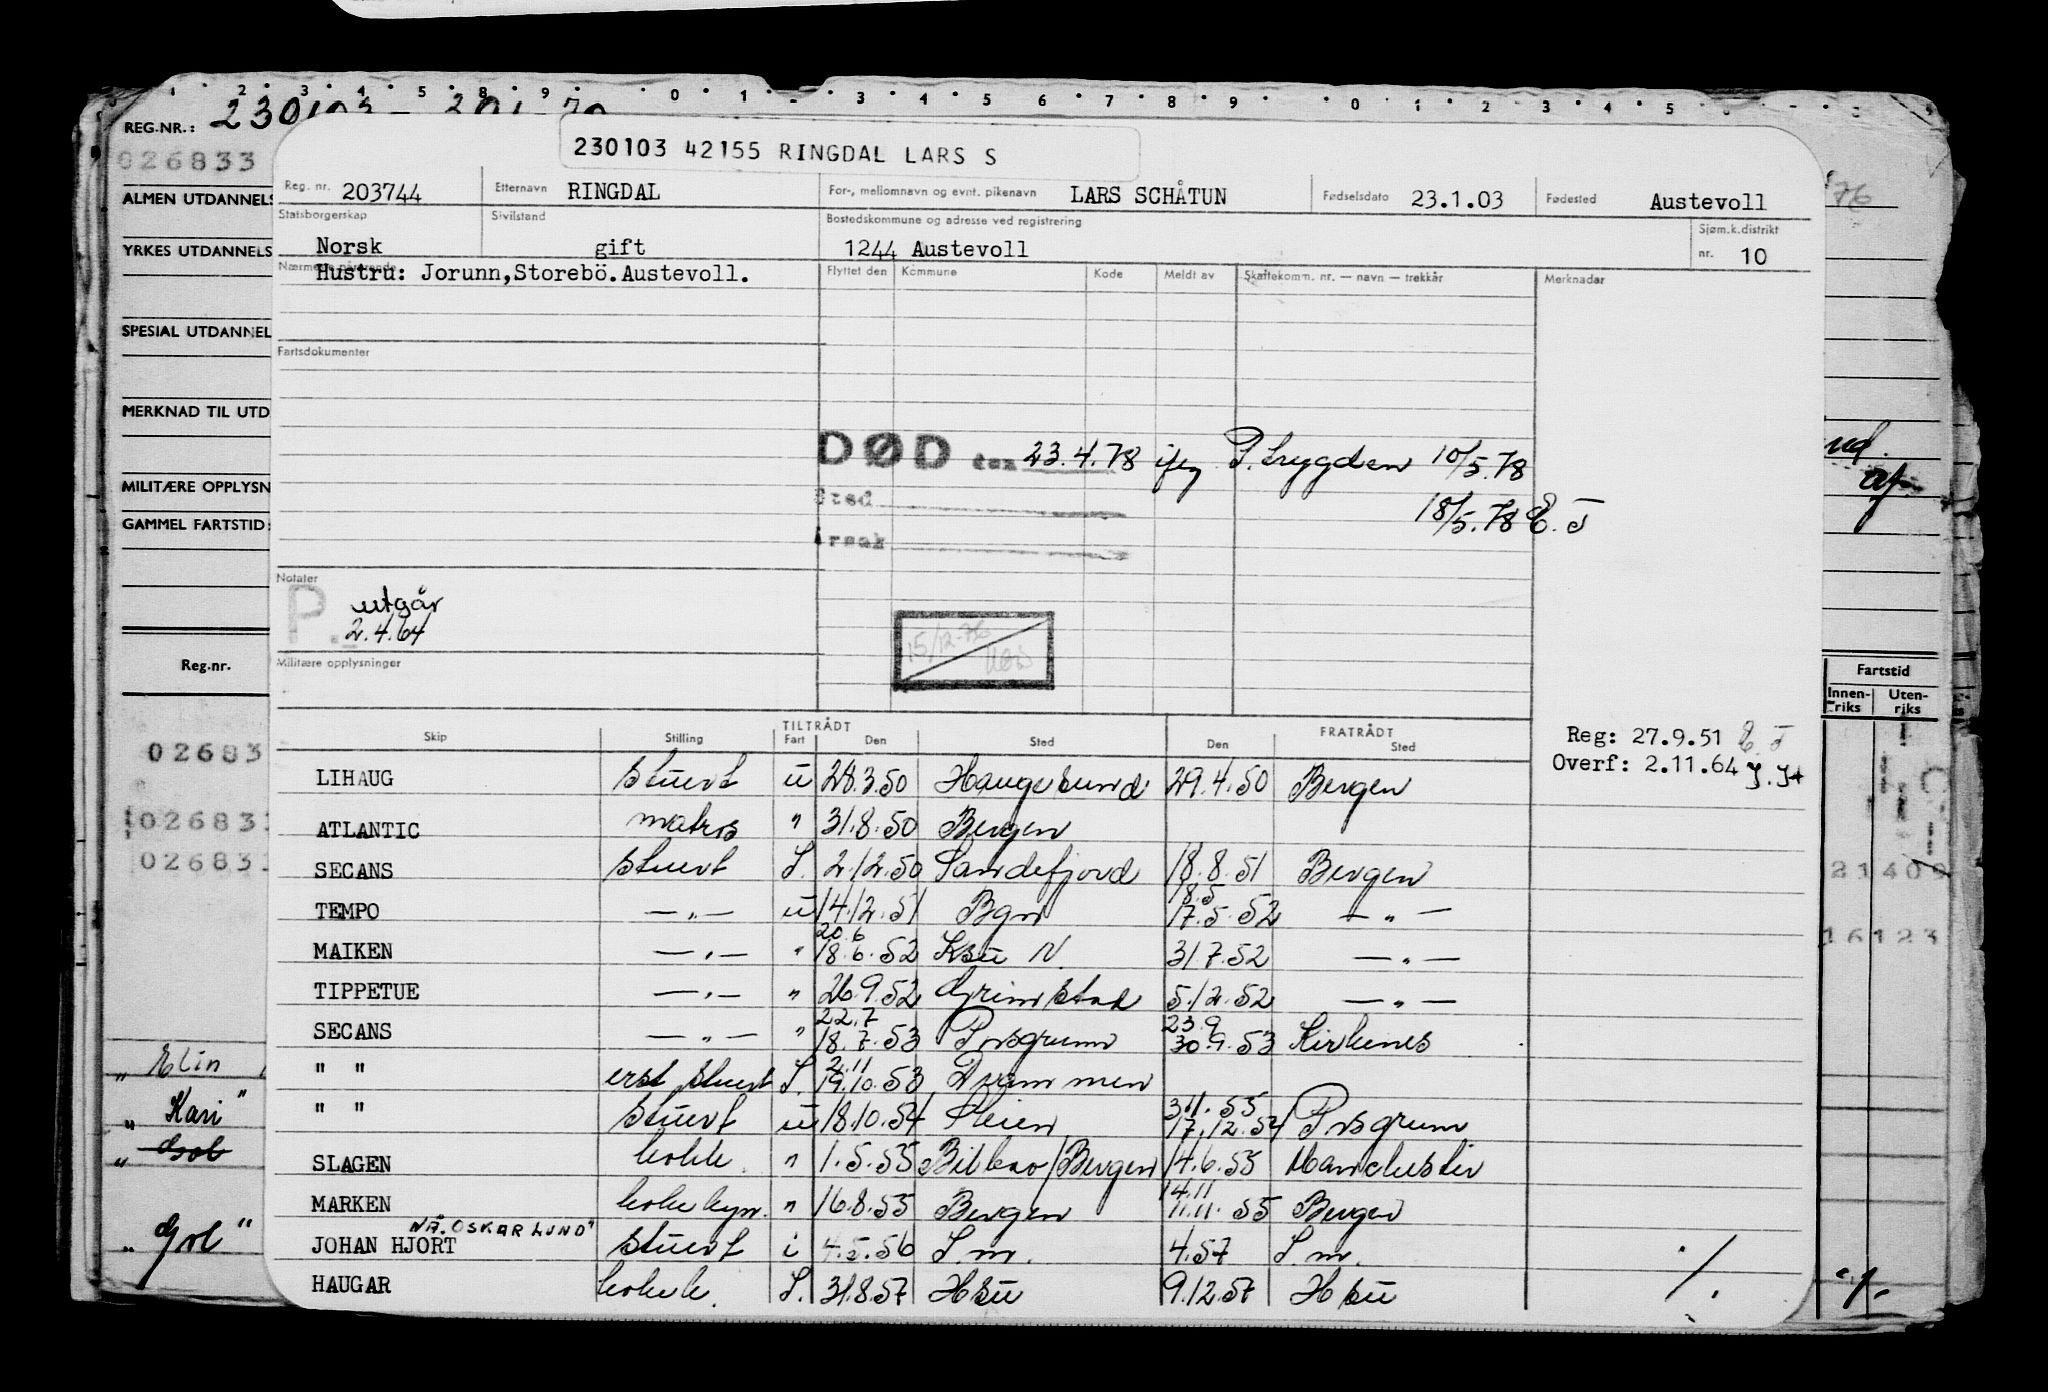 230103
REG.NR.:
026833
230103 42155 RINGDAL LARS S
Reg. nr. 203744 Etternavn RINGDAL For-, mellomnavn og evnt. pikenavn LARS SCHÅTUN Fødselsdato 23.1.03 Fødested Austevoll
Statsborgerskap Sivilstand Bostedskommune og adresse ved registrering Sjøm.k.distrikt
Norsk gift 1244 Austevoll nr. 10
Nærmeste pårørende Flyttet den Kommune Kode Meldt av Skattekomm. nr. — navn — trekkår Merknader
Hustru: Jorunn,Storebö.Austevoll.
ALMEN UTDANNELS
YRKES UTDANNELS
SPESIAL UTDANNEL
Fartsdokumenter
MERKNAD TIL UTD
DØD den 23.4.78 ifg P.trygden 10/5.78
MILITÆRE OPPLYSN
Sted
18/5.78 E. J
GAMMEL FARTSTID:
Årsak
Notater
P. utgår
2.4.64
15/12-76
Militære opplysninger
Reg.nr.
Fartstid
Innen-riks Uten-riks
Skip Stilling TILTRÅDT Fart Den Sted FRATRÅDT Den Sted
Reg: 27.9.51 E. J
Overf: 2.11.64
LIHAUG stuert u 28.3.50 Haugesund 29.4.50 Bergen
ATLANTIC matros " 31.8.50 Bergen
SECANS stuert S. 2.12.50 Sandefjord 18.8.51 Bergen
18.5
TEMPO — " — u 14.12.51 Bgn 17.5.52 — " —
20.6
MAIKEN — " — " 18.6.52 Ksu N. 31.7.52 — " —
TIPPETUE — " — " 26.9.52 Grimstad 5.12.52 — " —
22.7 23.9
SECANS — " — " 18.7.53 Porsgrunn 30.9.53 Kirkenes
2.11
" " erst. stuert S. 19.10.53 Drammen
3.11.55
" " stuert u 18.10.54 Skien 17.12.54 Porsgrunn
SLAGEN kokk " 1.5.55 Bilbao/Bergen 14.6.55 Manchester
14.11
MARKEN " 16.8.55 Bergen 11.11.55 Bergen
NÅ. OSKAR LUND"
JOHAN HJORT stuert i 4.5.56 S.m. 4.57 S.m.
HAUGAR S. 31.8.57 Hsu 9.12.57 Hsu
02683
02683
02683
21409
16123
" Elin
" Kari"
" Gol
" Gol"